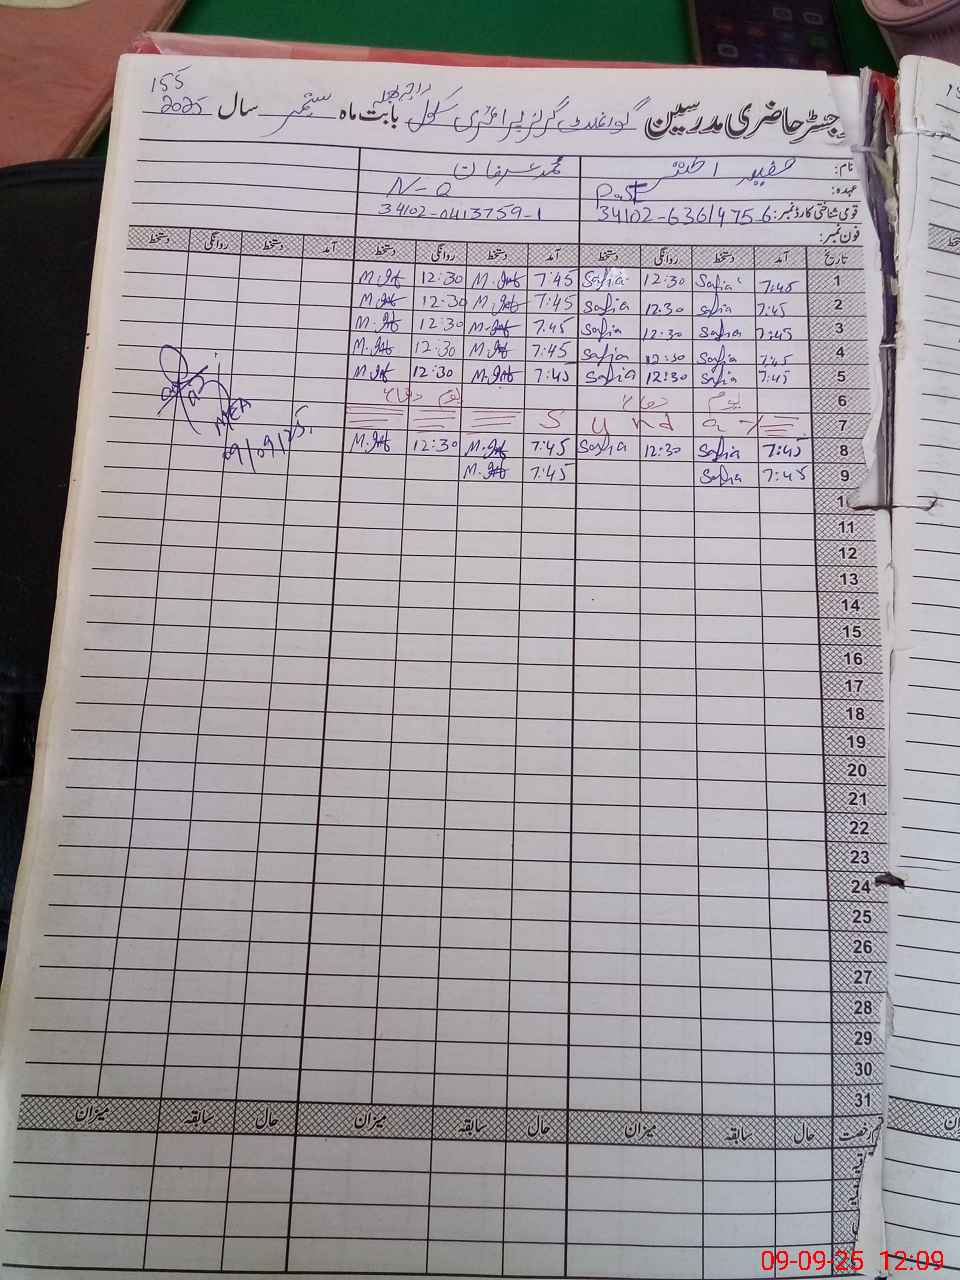 155
رجسٹر حاضری مدرسین گورنمنٹ گرلز پرائمری سکول بابت ماہ ستمبر سال 2025
نام: محمد عرفان
عہدہ: PST N-Q
قومی شناختی کارڈ نمبر: 34102-6361475-6 34102-0413759-1
فون نمبر:
تاریخ آمد دستخط روانگی دستخط آمد دستخط روانگی دستخط آمد دستخط روانگی دستخط
1 7:45 Safia 12:30 Safia 7:45 12:30
2 7:45 Safia 12:30 Safia 7:45 12:30
3 7:45 Safia 12:30 Safia 7:45 12:30
4 7:45 Safia 12:30 Safia 7:45 12:30
5 7:45 Safia 12:30 Safia 7:45 12:30
6 یوم دفاع یوم دفاع
7 Sunday
8 7:45 Safia 12:30 Safia 7:45 12:30
9 7:45 Safia 7:45
MEA
09/09/25
10
11
12
13
14
15
16
17
18
19
20
21
22
23
24
25
26
27
28
29
30
31
رخصت حال سابقہ میزان حال سابقہ میزان حال سابقہ میزان
09-09-25 12:09